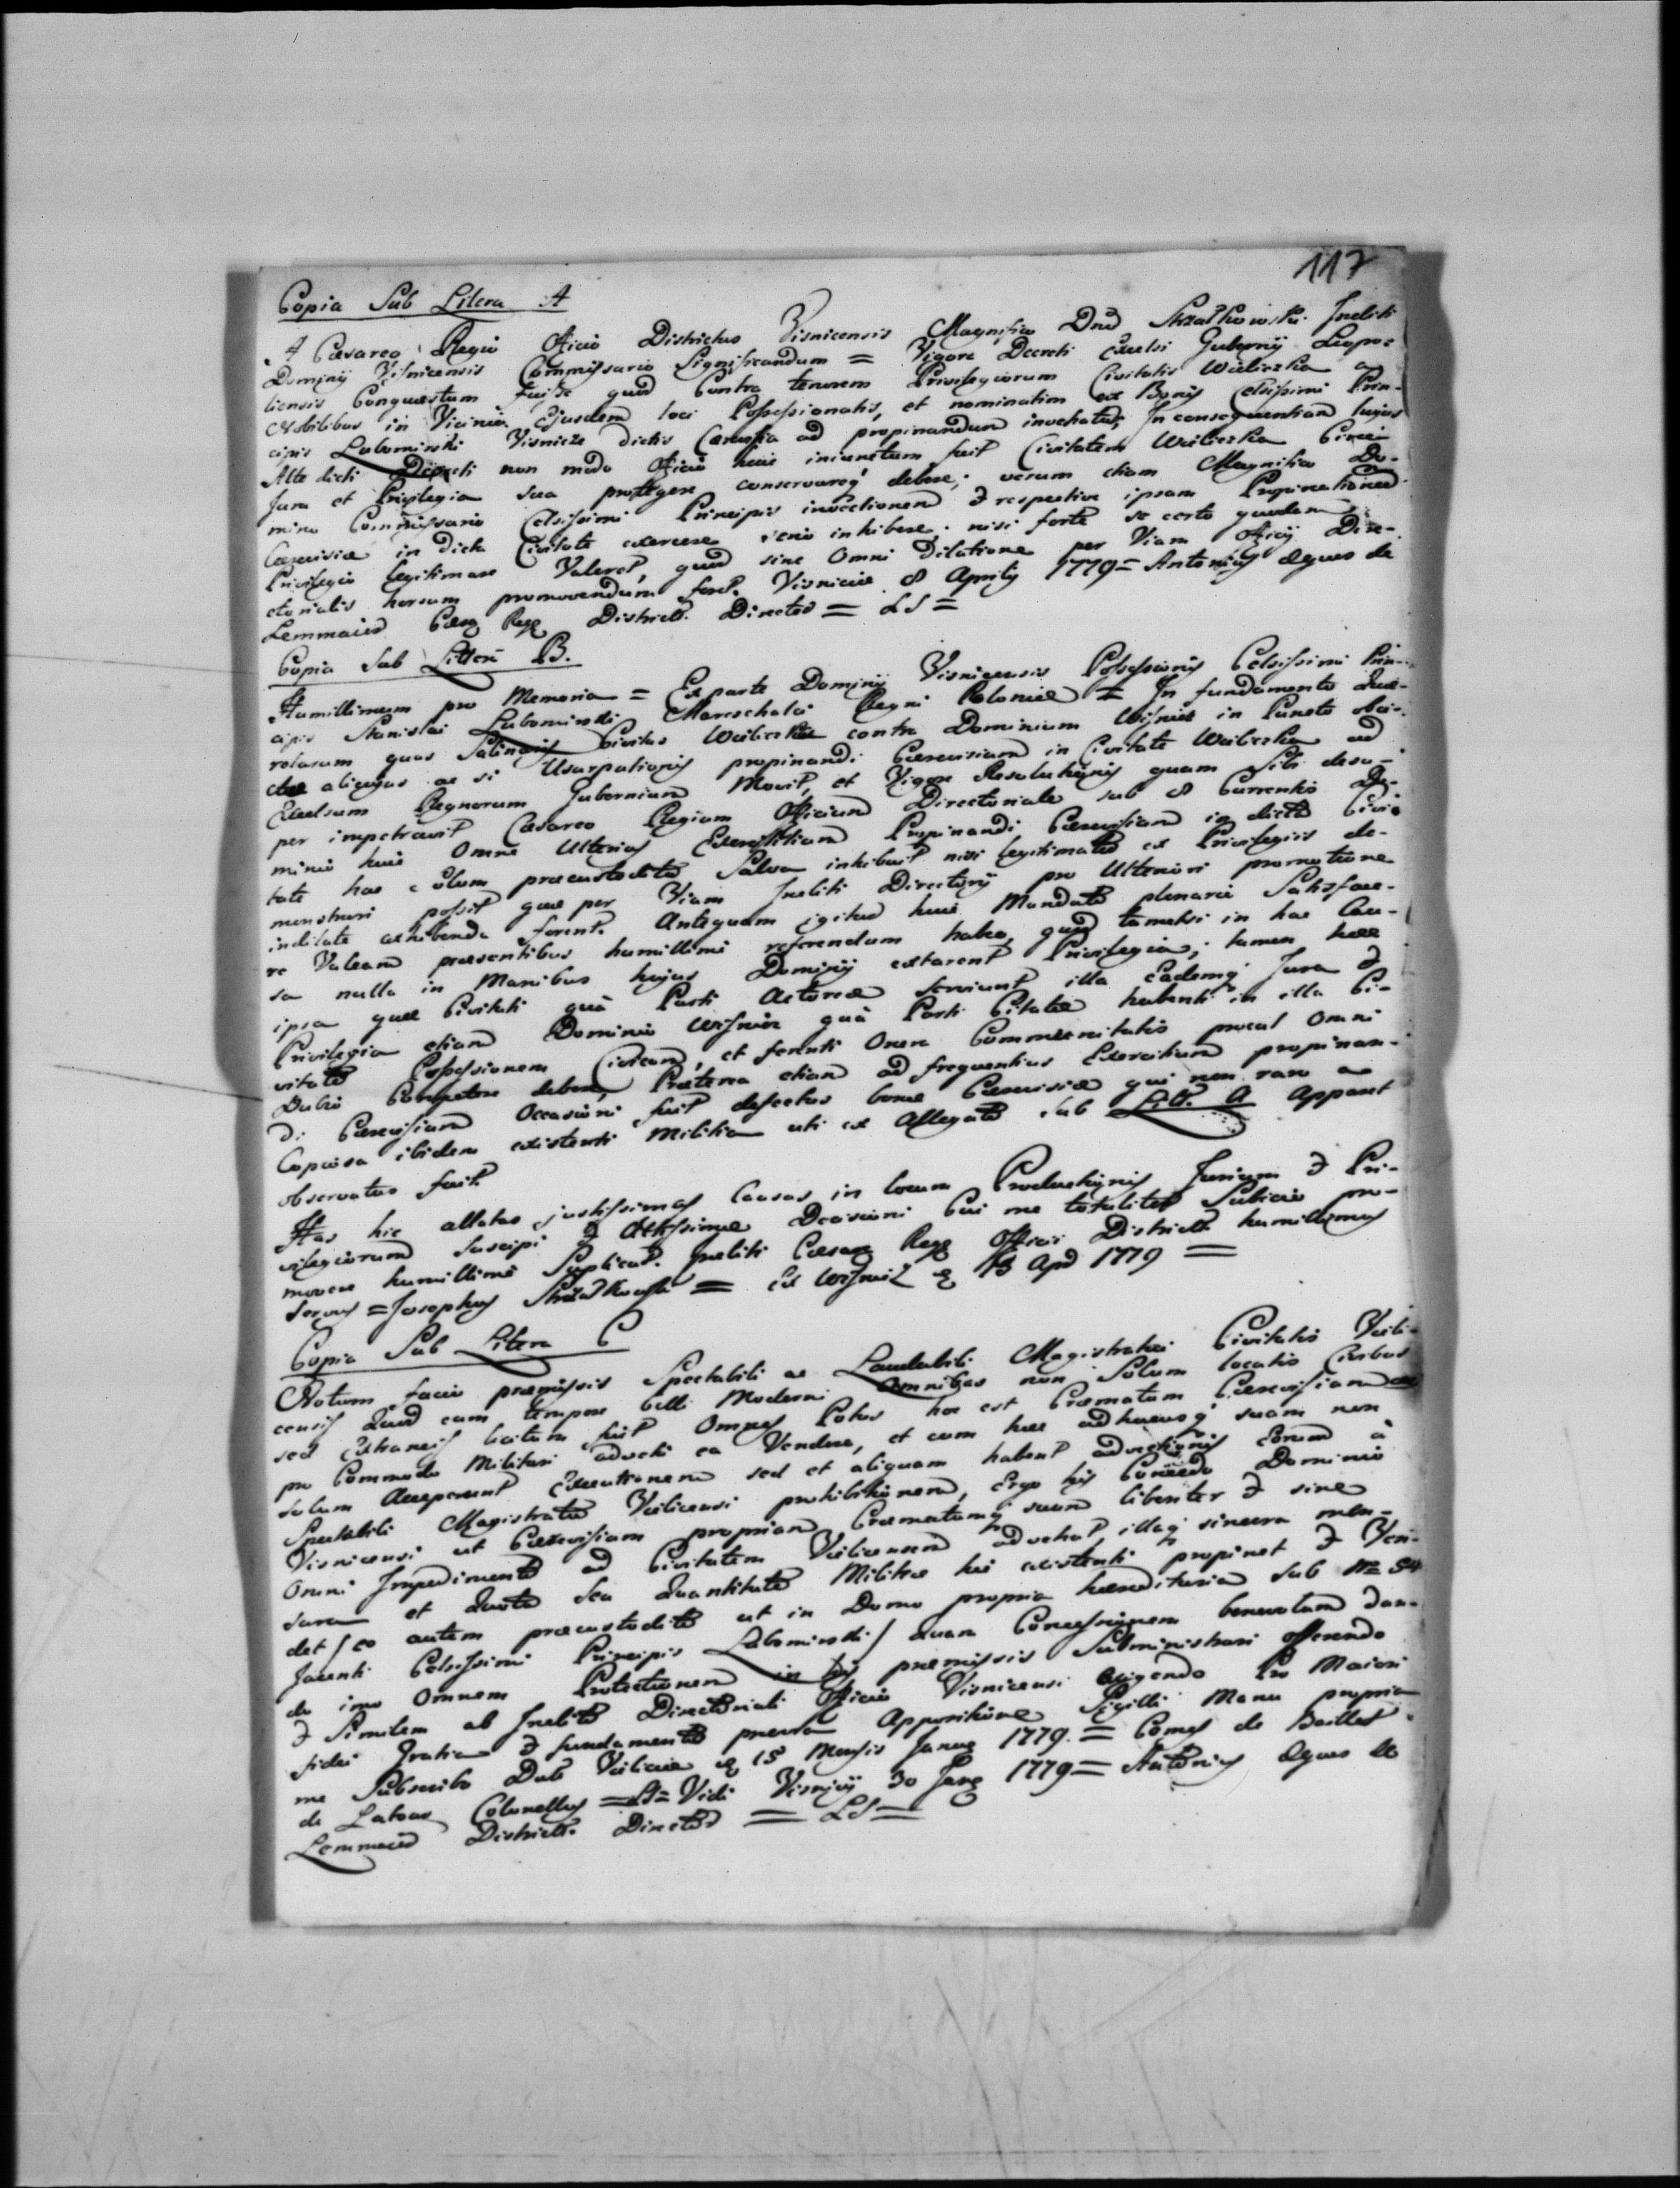 117
Copia Sub Litera A
A Caesareo Regio Officio Districtus Visnicensis Magnifico Dno Strzałkowski Incliti
Dominij Visnicensis Commissario Significandum = Vigore Decreti Excelsi Gubernij Leopo=
liensis Conquaestum fuisse quod Contra tenorem Privilegiorum Civitatis Wieliczka a
Nobilibus in Vicinia Ejusdem loci Possessionatis, et nominatim ex Bonis Celsissimi Prin-
cipis Lubomirski Visnicze dictis Cerevisia ad propinandum invehatur, In consequentiam hujus
Alte dicti Decreti non modo Officio huic iniunctum fuit Civitatem Wieliczka Circa
Jura et Privilegia sua protegere conservareq debere; verum etiam Magnifico Do-
mino Commissario Celsissimi Principis invectionem & respective ipsam Propinationem
Cerevisiae in dicta Civitate exercere serio inhibere; nisi forte se certo quodam
Privilegio legitimare Valeret, quod sine Omni dilatione per Viam Officij Dire-
ctorialis horsum promovendum foret. Visniciae 8 Aprilis 1779 = Antonius Eques de
Lemmaier Caes Reg District. Director = LS =
Copia Sub Littera B.
Humillimum pro Memoria = Ex parte Dominij Visnicensis Possessionis Celsissimi Prin-
cipis Stanislai Lubomirski Mareschalci Regni Poloniae = In fundamento Que-
relarum quas Salinaris Civitas Wieliczka contra Dominium Wisnicz in Puncto obie-
ctae alicujus ac si Usurpationis propinandi Cerevisiam in Civitate Wieliczka ad
Excelsum Regnorum Gubernium Movit, et Vigore Resolutionis quam Sibi desu-
per impetravit Caesareo Regium Officium Directoriale sub 8 Currentis Do-
minio huic Omne Ulterius Exercitium Propinandi Cerevisiam in dicta Civi-
tate hac solum praecustodita Salva inhibuit nisi legitimatio ex Privilegiis de-
monstrari possit quae per Viam Incliti Directorij pro Ulteriori promotione
indilate exhibenda forent. Antequam igitur huic Mandato plenarie Satisface-
re Valeam praesentibus humillime referendum habeo, quod tametsi in hac Cau-
sa nulla in Manibus hujus Dominij extarent Privilegia; tamen haec
ipsa quae Civitati quà Parti Actoreae serviunt illa Eademq Jura &
Privilegia etiam Dominio Wisnicz quà Parti Citatae habenti in illa Ci-
vitate Possessionem Civicam, et ferenti Onera Communitatis procul Omni
Dubio Competere debere, Praeterea etiam ad frequentius Exercitium propinan-
di Cerevisiam Occasioni fuit defectus bonae Cerevisiae qui non raro a
Copiosa ibidem existenti Militia uti ex Allegato sub Litt. A Apparet
observatus fuit
Has hic allatas justissimas Causas in locum Productionis Jurium & Pri-
vilegiorum Suscipi & Altissimae Decisioni Cui me totaliter Subicio pro-
movere humillime Supplicat. Incliti Caesar Reg Officii District. humillimus
servus = Josephus Strzałkowski = Ex Wisnicz 13 Apr 1779 =
Copia Sub Litera C
Notum facio praemissis Spectabili ac Laudabili Magistratui Civitatis Vieli-
censis Quod cum tempore belli Moderni Omnibus non Solum locatis Civibus
sed Extraneis licitum fuit Omnes Potus hoc est Crematum Cerevisiam
pro Commodo Militari advecti ea Vendere, et cum hae adhucusq suam non
solum Acceperunt Executionem sed et aliquam habent advectionis Eorum à
Spectabili Magistratu Vielicensi prohibitionem, Ergo his Concedo Dominio
Visnicensi ut Cerevisiam propriam Crematumq suum libenter & sine
Omni Impedimento ad Civitatem Vielicensem advehat, illaq sincera men-
sura et Quota Seu Quantitate Militiae hic existenti propinet & Ven-
det / eo autem praecustodito ut in Domo propria haereditaria sub Nro 54
Jacenti Celsissimi Principis Lubomirski / Quam Concessionem benevolam dan-
do imo Omnem Protectionem in his praemissis Subministrari offerendo
& Similem ab Inclito Directoriali Officio Visnicensi exigendo Pro Maiori
fidei Gratia & fundamento praevia Appositione Sigilli Manu propria
me Subscribo Dat Vieliciae 15 Mensis Janua 1779. = Comes de Baillet
de Latour Colonellus = LS = Vidi Visnicij 30 Jan 1779 = Antonius Eques de
Lemmaier District. Director = LS =